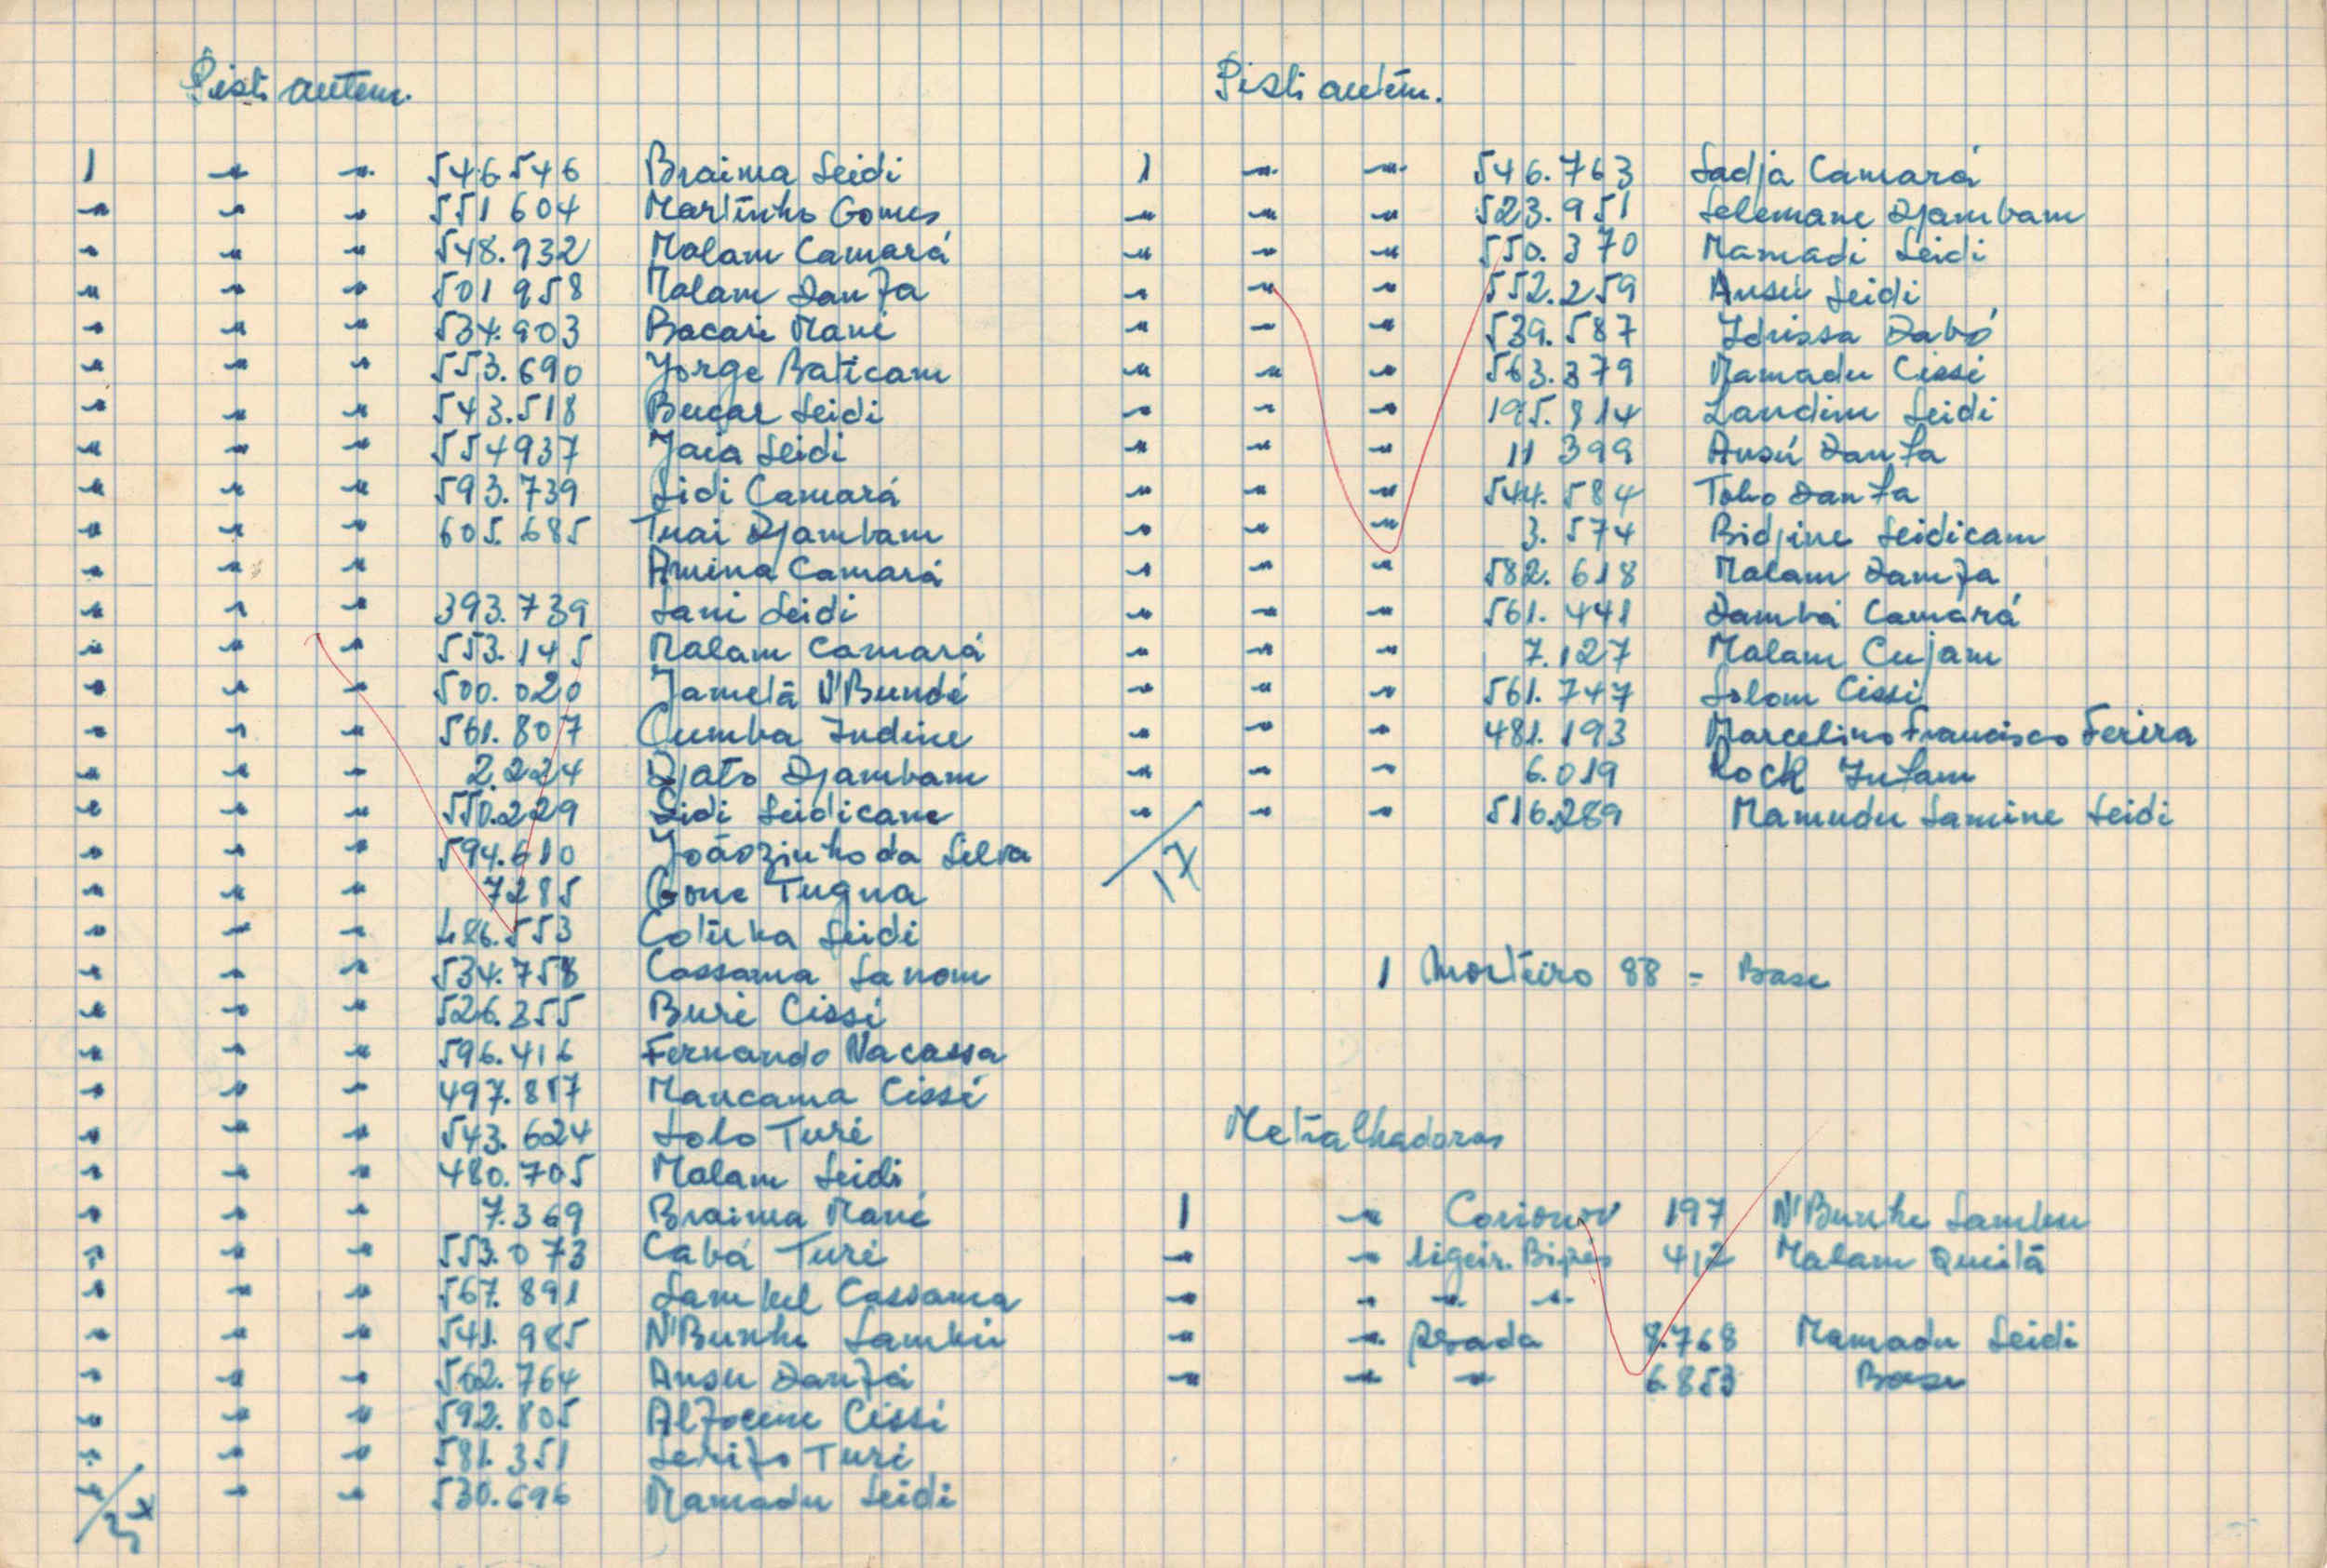 Pist. autom.
1 " " 546.546 Braima Seidi
" " " 551 604 Martinho Gomes
" " " 548.932 Malam Camará
" " " 501 958 Malam Danfa
" " " 534.903 Bacari Mané
" " " 553.690 Jorge Baticam
" " " 543.518 Bucar Seidi
" " " 554937 Jaia Seidi
" " " 593.739 Sidi Camará
" " " 605.685 Tuai Djambam
" " " Amina Camará
" " " 393.739 Sani Seidi
" " " 553.145 Malam Camará
" " " 500.020 Jametã N'Bundé
" " " 561.807 Cumba Indine
" " " 2.224 Djato Djambam
" " " 550.229 Sidi Seidicane
" " " 594.610 Joãozinho da Selva
" " " 7285 Gone Tugna
" " " 486.553 Cotucha Seidi
" " " 534.758 Cassama Sanom
" " " 526.355 Buré Cissé
" " " 596.416 Fernando Nacassa
" " " 497.857 Mancama Cissé
" " " 543.624 Solo Turé
" " " 480.705 Malam Seidi
" " " 7.369 Braima Mané
" " " 553.073 Cabá Turé
" " " 567.891 Sambel Cassama
" " " 541.985 N'Bunhe Sambú
" " " 562.764 Ansu Danfá
" " " 592.805 Alfocene Cissé
" " " 581.351 Serifo Turé
" " " 530.696 Mamadu Seidi
Pist. autom.
1 " " 546.763 Sadja Camará
" " " 523.951 Selemane Djambam
" " " 550.370 Mamadi Seidi
" " " 552.259 Ansú Seidi
" " " 539.587 Idrissa Dabó
" " " 563.379 Mamadu Cissé
" " " 195.814 Landim Seidi
" " " 11 399 Ansú Danfa
" " " 544.584 Tobo Danfa
" " " 3.574 Bidjine Seidicam
" " " 582.618 Malam Damfa
" " " 561.441 Dambá Camará
" " " 7.127 Malam Cujam
" " " 561.747 Solom Cissé
" " " 481.193 Marcelino Francisco Ferira
" " " 6.019 Rock Infam
" " " 516.289 Mamudu Lamine Seidi
17
1 Morteiro 88 = Base
Metralhadoras
1 " Corionov 197 N'Bunhe Sambu
" " ligeir. Bipés 412 Malam Queitã
" " " "
" " pesada 8.768 Mamadu Seidi
" " " 6.853 Base